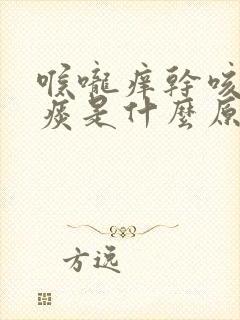 喉嚨痒幹咳
痰是什麼原
方逸